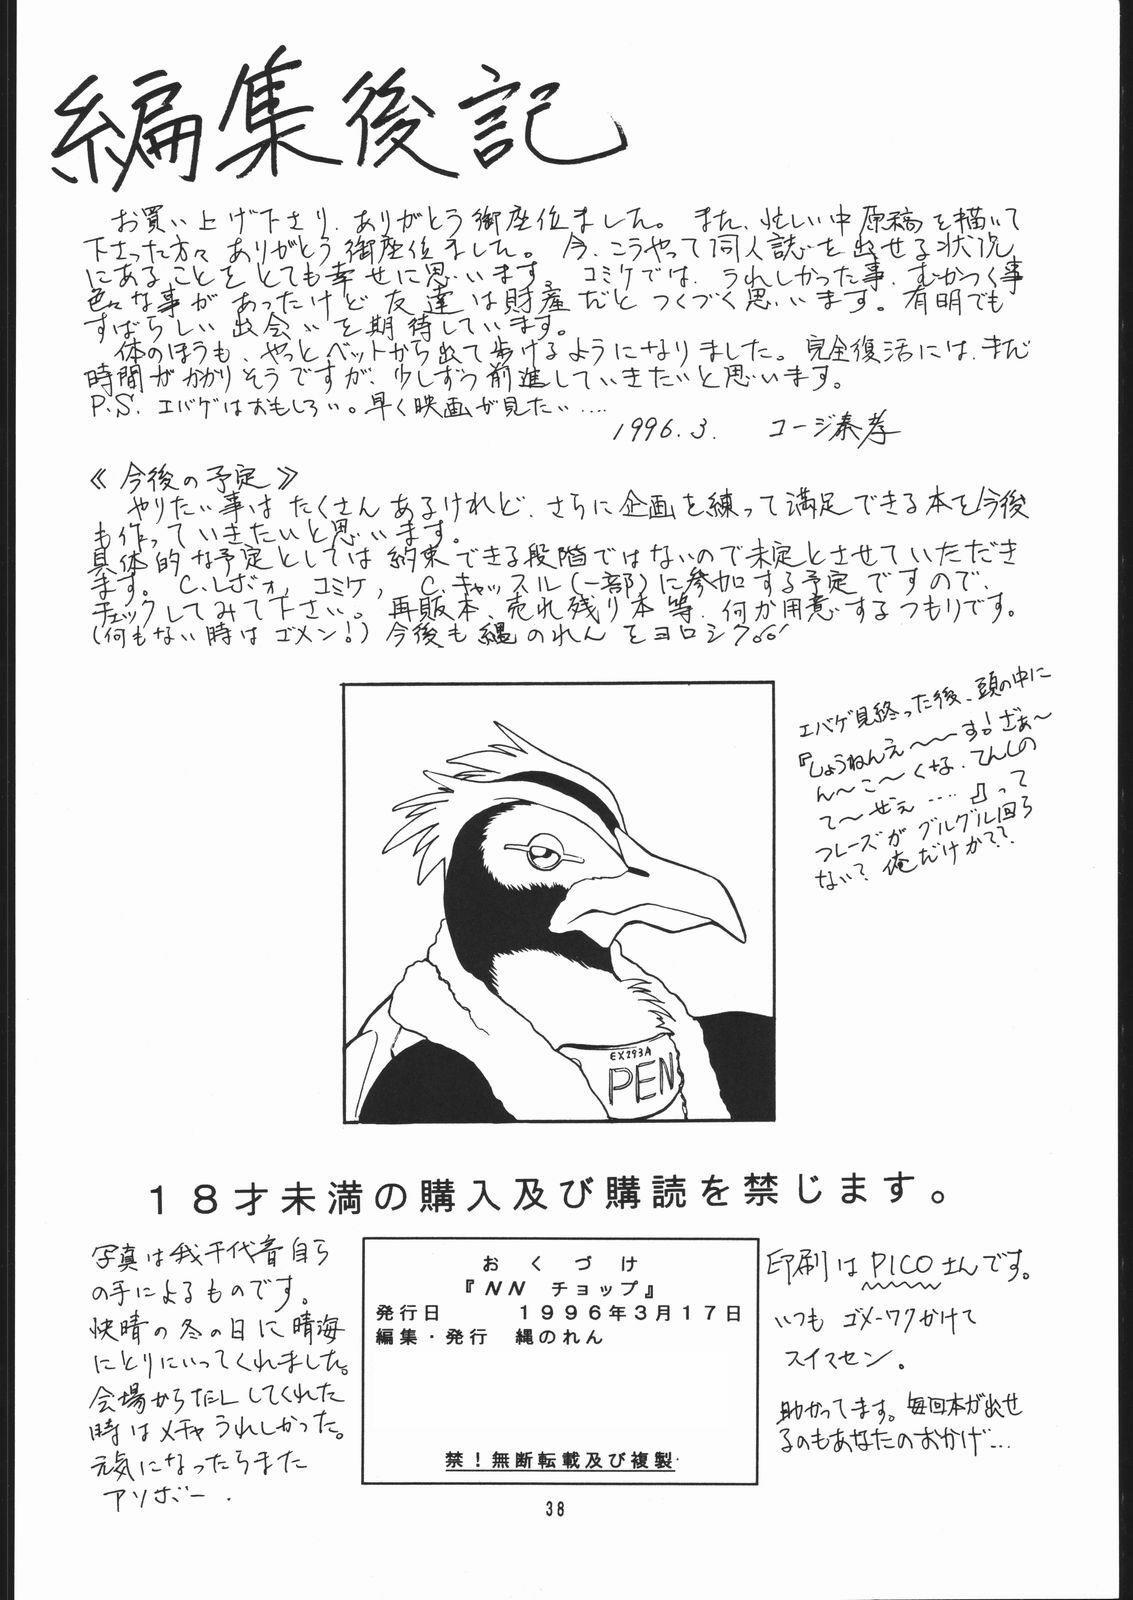 編集後記
お買い上げ下さり、ありがとう御座位ました。また、忙しい中原稿を描いて
下さった方々ありがとう御座位ました。今、こうやって同人誌を出せる状況
にあることをとても幸せに思います。コミケでは、うれしかった事、むかつく事
色々な事があったけど友達は財産だとつくづく思います。有明でも
すばらしい出会いを期待しています。
体のほうも、やっとベットから出て歩けるようになりました。完全復活には、まだ
時間がかかりそうですが、少しずつ前進していきたいと思います。
P.S. エバゲはおもしろい。早く映画が見たい....
1996.3. コージ泰孝
《今後の予定》
やりたい事はたくさんあるけれど、さらに企画を練って満足できる本を今後
も作っていきたいと思います。
具体的な予定としては約束できる段階ではないので未定とさせていただき
ます。C.レボォ,コミケ,C.キャッスル(一部)に参加する予定ですので、
チェックしてみて下さい。再販本、売れ残り本等、何か用意するつもりです。
(何もない時はゴメン!)今後も縄のれんをヨロシク。。
エバゲ見終った後、頭の中に
『しょうねんえ〜〜〜す!ざぁ〜
ん〜こ〜くな、てんしの
て〜ぜぇ....』って
フレーズがグルグル回ら
ない?俺だけか??
EX293A
PEN
18才未満の購入及び購読を禁じます。
写真は我千代音自ら
の手によるものです。
快晴の冬の日に晴海
にとりにいってくれました。
会場からTELしてくれた
時はメチャうれしかった。
元気になったらまた
アソボー.
おくづけ
『NN チョップ』
発行日 1996年3月17日
編集・発行 縄のれん
禁!無断転載及び複製
印刷はPICOさんです。
いつもゴメーワクかけて
スイマセン。
助かってます。毎回本が出せ
るのもあなたのおかげ...
38